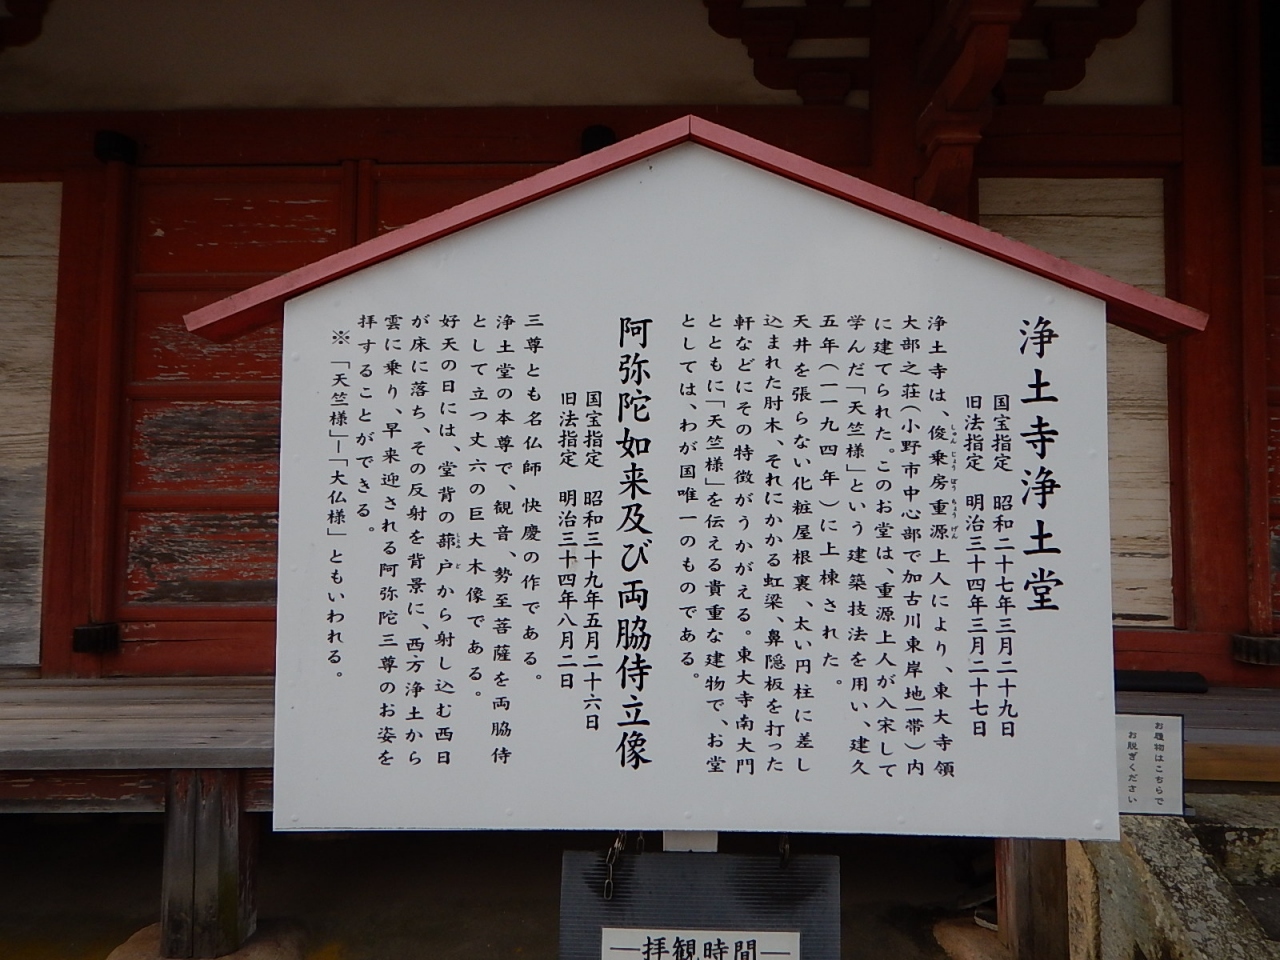 浄土寺浄土堂
国宝指定 昭和二十七年三月二十九日
旧法指定 明治三十四年三月二十七日
浄土寺は、俊乗房重源上人により、東大寺領
しゅんじょうぼうちょうげん
大部之荘(小野市中心部で加古川東岸地一帯)内
に建てられた。このお堂は、重源上人が入宋して
学んだ「天竺様」という建築技法を用い、建久
五年(一一九四年)に上棟された。
天井を張らない化粧屋根裏、太い円柱に差し
込まれた肘木、それにかかる虹梁、鼻隠板を打った
軒などにその特徴がうかがえる。東大寺南大門
とともに「天竺様」を伝える貴重な建物で、お堂
としては、わが国唯一のものである。
阿弥陀如来及び両脇侍立像
国宝指定 昭和三十九年五月二十六日
旧法指定 明治三十四年八月二日
三尊とも名仏師 快慶の作である。
浄土堂の本尊で、観音、勢至菩薩を両脇侍
として立つ丈六の巨大木像である。
好天の日には、堂背の蔀戸から射し込む西日
しとみど
が床に落ち、その反射を背景に、西方浄土から
雲に乗り、早来迎される阿弥陀三尊のお姿を
拝することができる。
※「天竺様」―「大仏様」ともいわれる。
お履物はこちらで
お脱ぎください
―拝観時間―